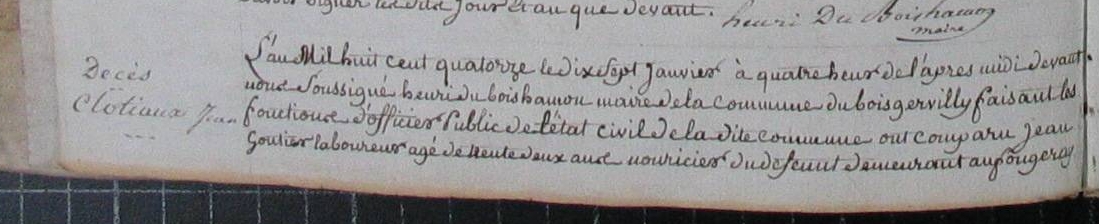 signer les dits jour et an que devant. henri Du Boishamon
maire
Décès
Clotiaux Jean
---
L'an Mil huit cent quatorze le dix sept Janvier à quatre heur de l'apres midi devant
nous Soussigné henri du boishamon maire de la commune du boisgervilly faisant les
fonctions d'officier Public de l'état civil de la dite commune ont comparu jean
Goutier laboureur agé de trente deux ans nouricier du defunt demeurant au fougeray